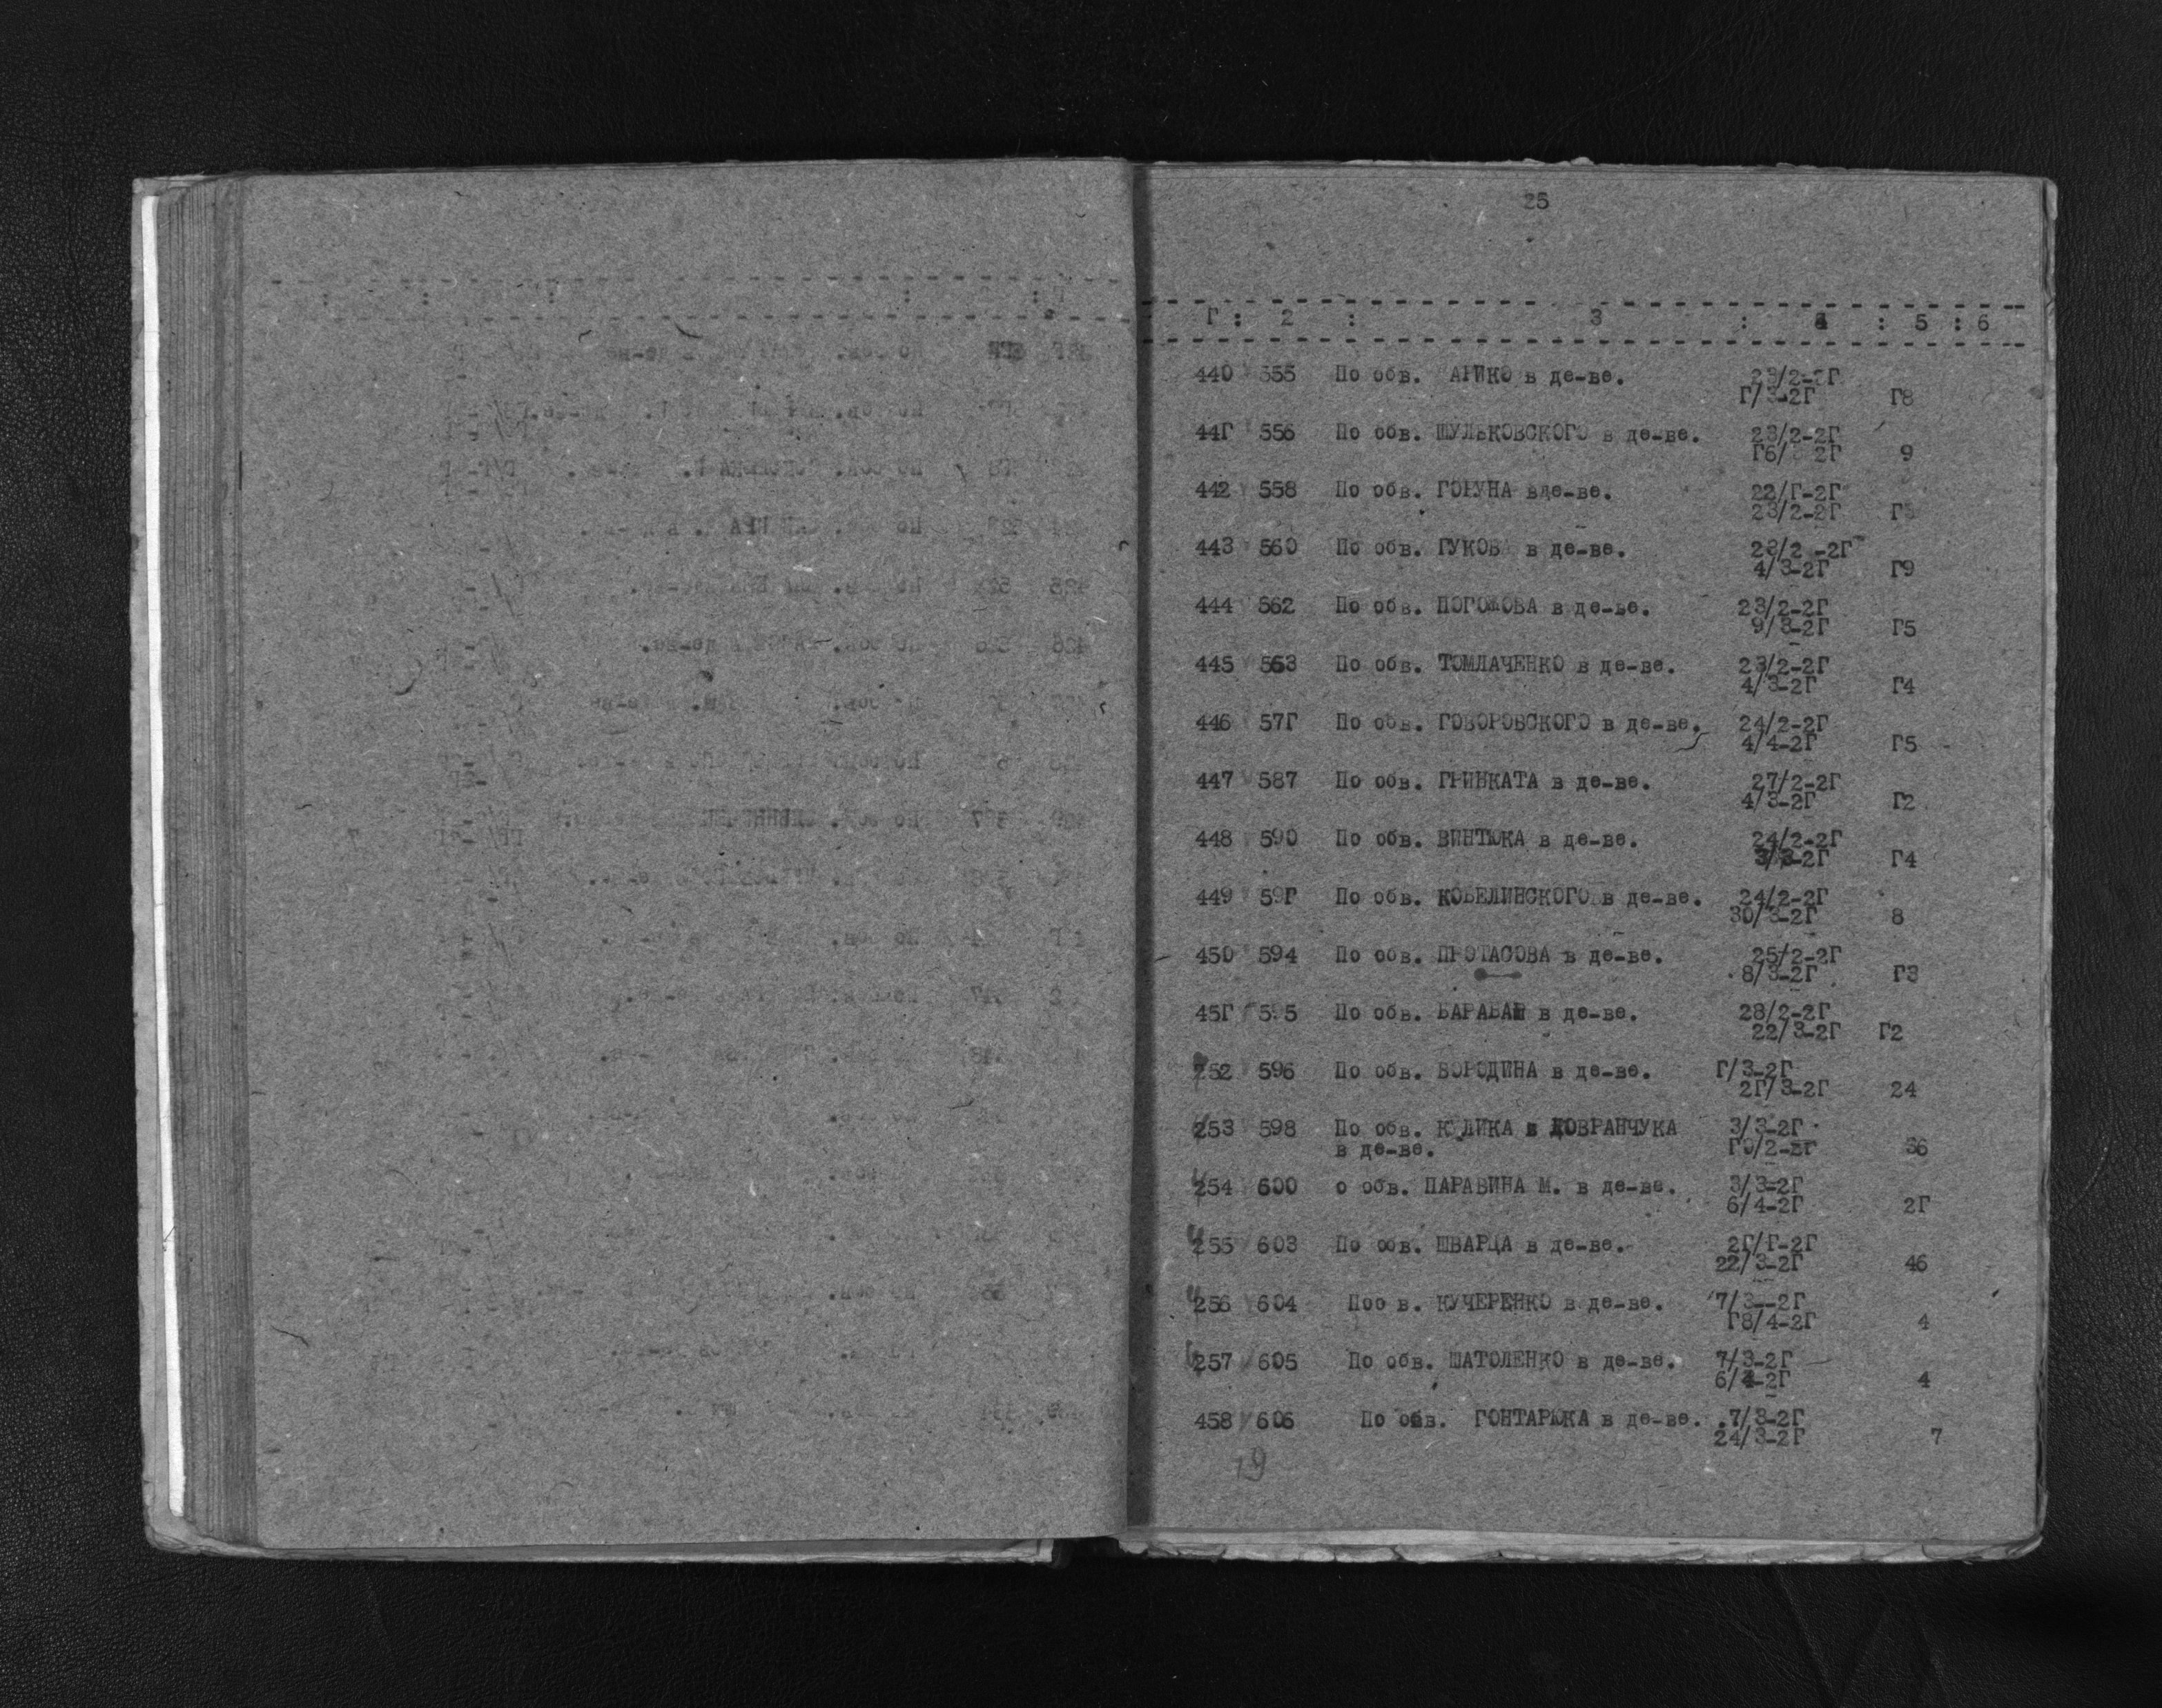 25
Г : 2 : 3 : 4 : 5 : 6
440 555 По обв. АРИКО в де-ве. 23/2-2Г
Г/3-2Г Г8
44Г 556 По обв. ШУЛЬКОВСКОГО в де-ве. 23/2-2Г
Г6/ 2Г 9
442 558 По обв. ГОРУНА вде-ве. 22/Г-2Г
23/2-2Г
443 560 По обв. ГУКОВА в де-ве. 23/2 -2Г
4/3-2Г Г9
444 562 По обв. ПОГОЖОВА в де-ве. 23/2-2Г
9/3-2Г Г5
445 563 По обв. ТОМЛАЧЕНКО в де-ве. 23/2-2Г
4/3-2Г Г4
446 57Г По обв. ГОВОРОВСКОГО в де-ве. 24/2-2Г
4/4-2Г Г5
447 587 По обв. ГРИНКАТА в де-ве. 27/2-2Г
4/3-2Г Г2
448 590 По обв. ВИНТЮКА в де-ве. 24/2-2Г
3/3-2Г Г4
449 59Г По обв. КОБЕЛИНСКОГО в де-ве. 24/2-2Г
30/3-2Г 8
450 594 По обв. ПРОТАСОВА в де-ве. 25/2-2Г
8/3-2Г Г3
45Г 595 По обв. БАРАБАШ в де-ве. 28/2-2Г
22/3-2Г Г2
252 596 По обв. БОРОДИНА в де-ве. Г/3-2Г
2Г/3-2Г 24
253 598 По обв. КУЛИКА в ДОВРАНЧУКА 3/3-2Г
в де-ве. Г0/2-2Г 36
254 600 о обв. ПАРАВИНА М. в де-ве. 3/3-2Г
6/4-2Г 2Г
255 603 По обв. ШВАРЦА в де-ве. 2Г/Г-2Г
22/3-2Г 46
256 604 Поо в. КУЧЕРЕНКО в де-ве. 7/3--2Г
Г8/4-2Г 4
257 605 По обв. ШАТОЛЕНКО в де-ве. 7/3-2Г
6/4-2Г 4
458 606 По обв. ГОНТАРЮКА в де-ве. 7/3-2Г
24/3-2Г 7
19